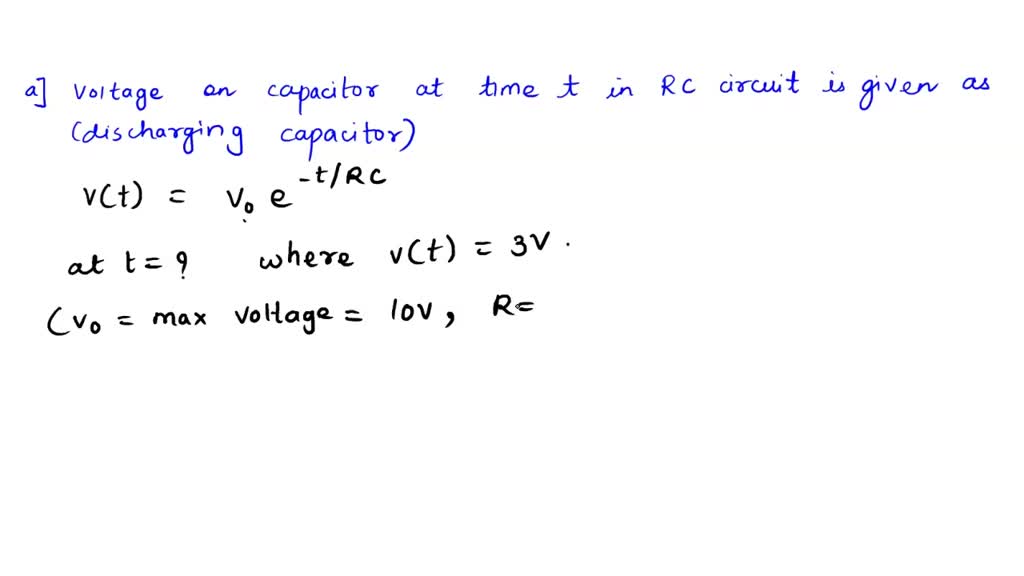 a] Voltage on capacitor at time t in RC circuit is given as
(discharging capacitor)
v(t) = V₀ e^-t/RC
at t = ? where v(t) = 3V .
(V₀ = max voltage = 10V, R=